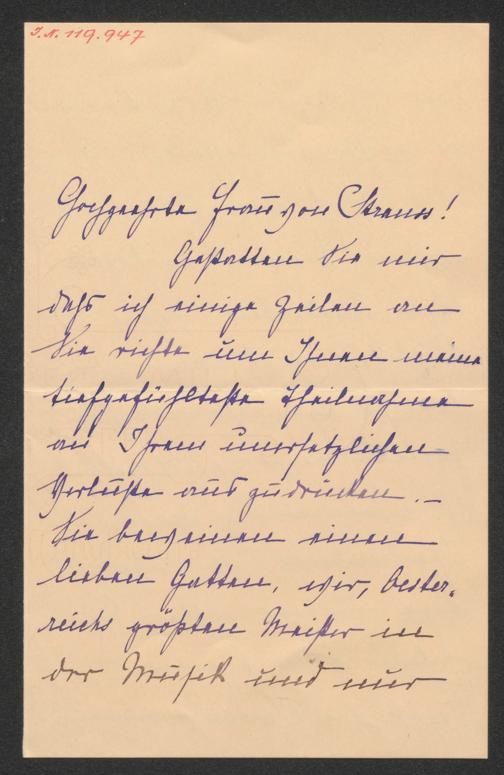 J.N. 119.947
Hochgeehrte Frau von Strauss!
Gestatten Sie mir
daß ich einige Zeilen an
Sie richte um Ihnen meine
tiefgefühlteste Theilnahme
an Ihrem unersetzlichen
Verluste aus zudrücken. –
Sie beweinen einen
lieben Gatten, wir, Oester-
reichs größten Meister in
der Musik und nur